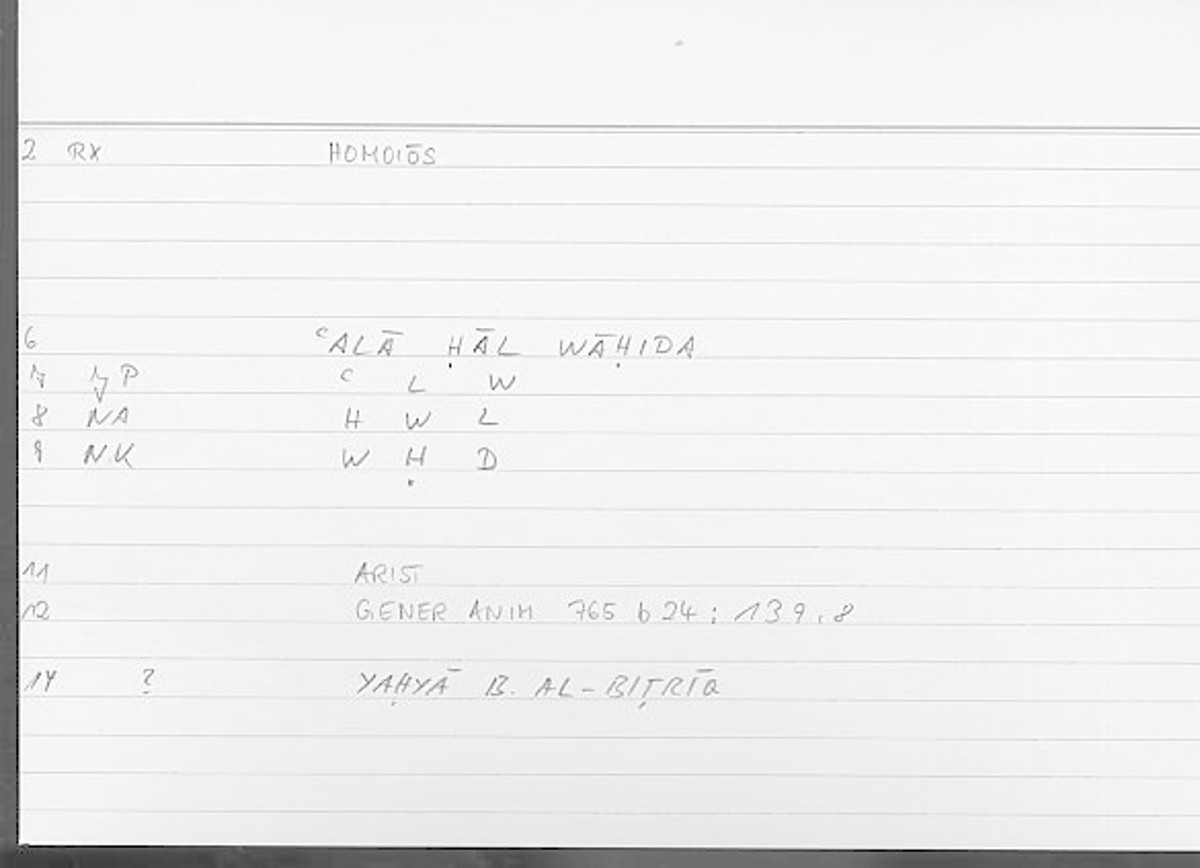 2 RX HOMOIŌS
6 ʿALĀ ḤĀL WĀḤIDA
7 P ʿ L W
8 NA H W L
9 NK W Ḥ D
11 ARIST
12 GENER ANIM 765 b 24 : 139,8
14 ? YAḤYĀ B. AL-BIṬRĪQ